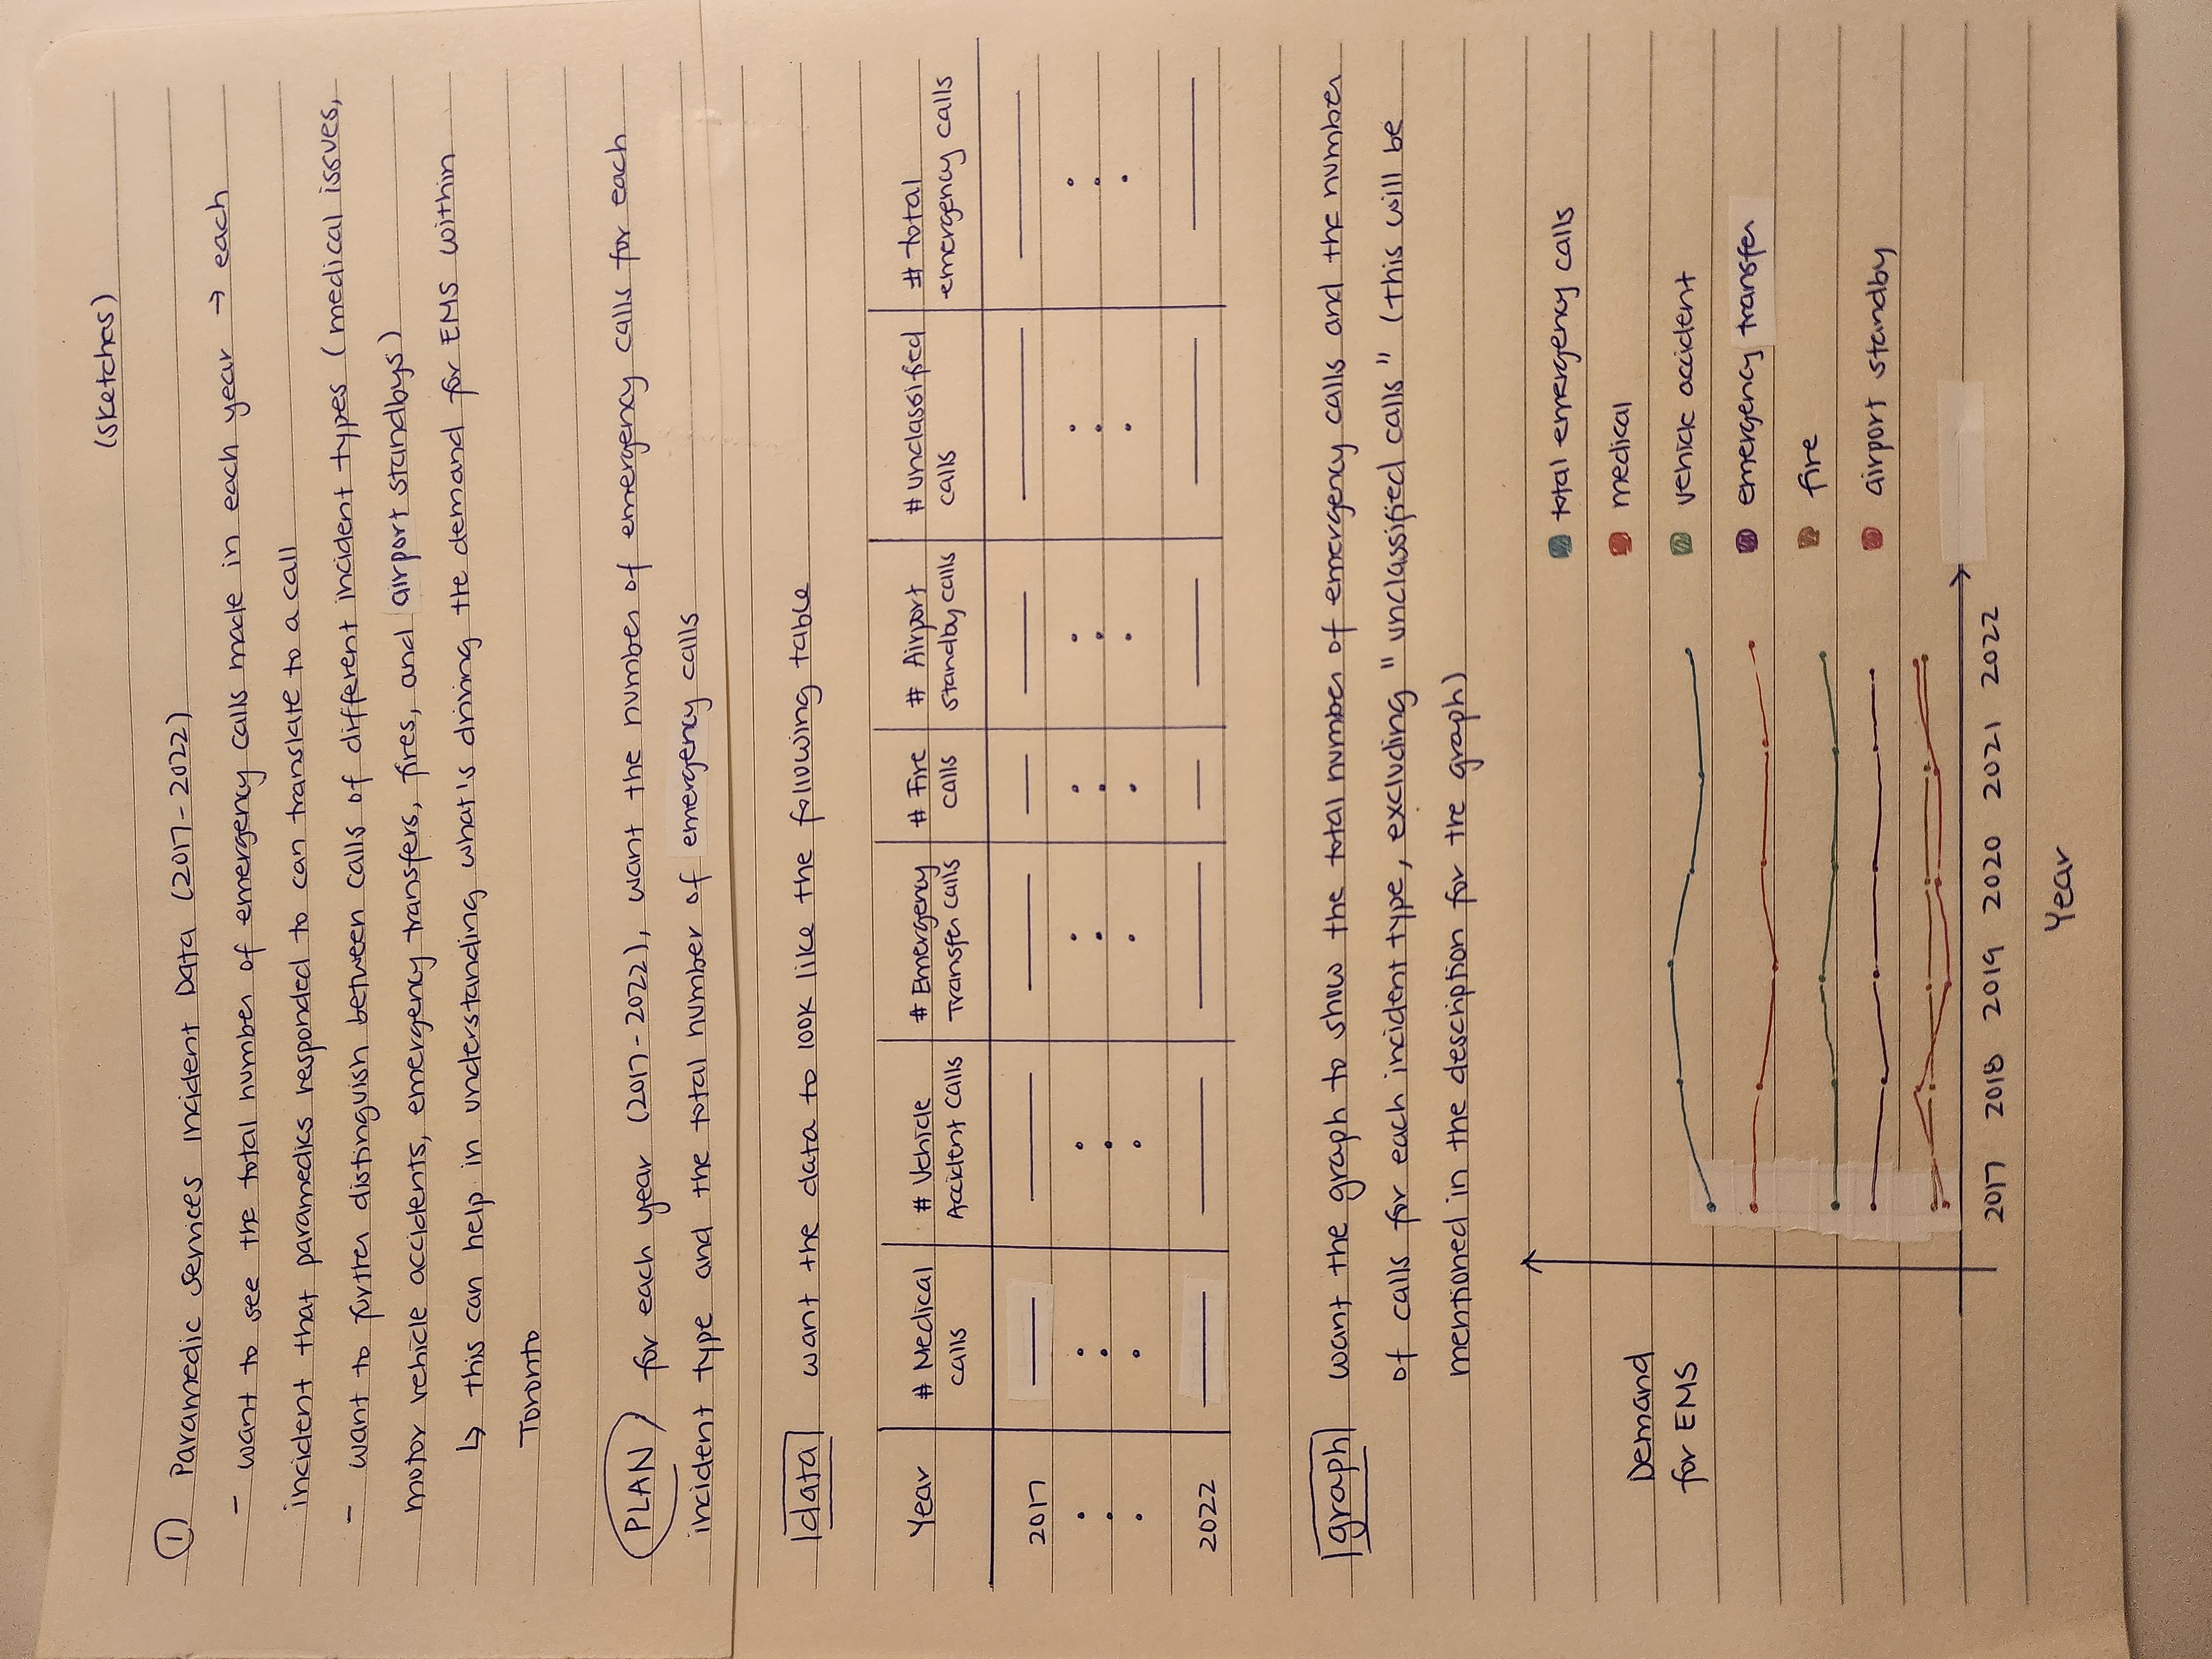 (sketches)
① Paramedic Services Incident Data (2017-2022)
- want to see the total number of emergency calls made in each year → each
incident that paramedics responded to can translate to a call
- want to further distinguish between calls of different incident types (medical issues,
motor vehicle accidents, emergency transfers, fires, and airport standbys)
↳ this can help in understanding what's driving the demand for EMS within
Toronto
PLAN for each year (2017-2022), want the number of emergency calls for each
incident type and the total number of emergency calls
data want the data to look like the following table
Year # Medical # Vehicle # Emergency # Fire # Airport # unclassified # total
calls Accident calls Transfer calls calls standby calls calls emergency calls
2017
2022
graph want the graph to show the total number of emergency calls and the number
of calls for each incident type, excluding "unclassified calls" (this will be
mentioned in the description for the graph)
total emergency calls
medical
Demand
for EMS
vehicle accident
emergency transfer
fire
airport standby
2017 2018 2019 2020 2021 2022
Year